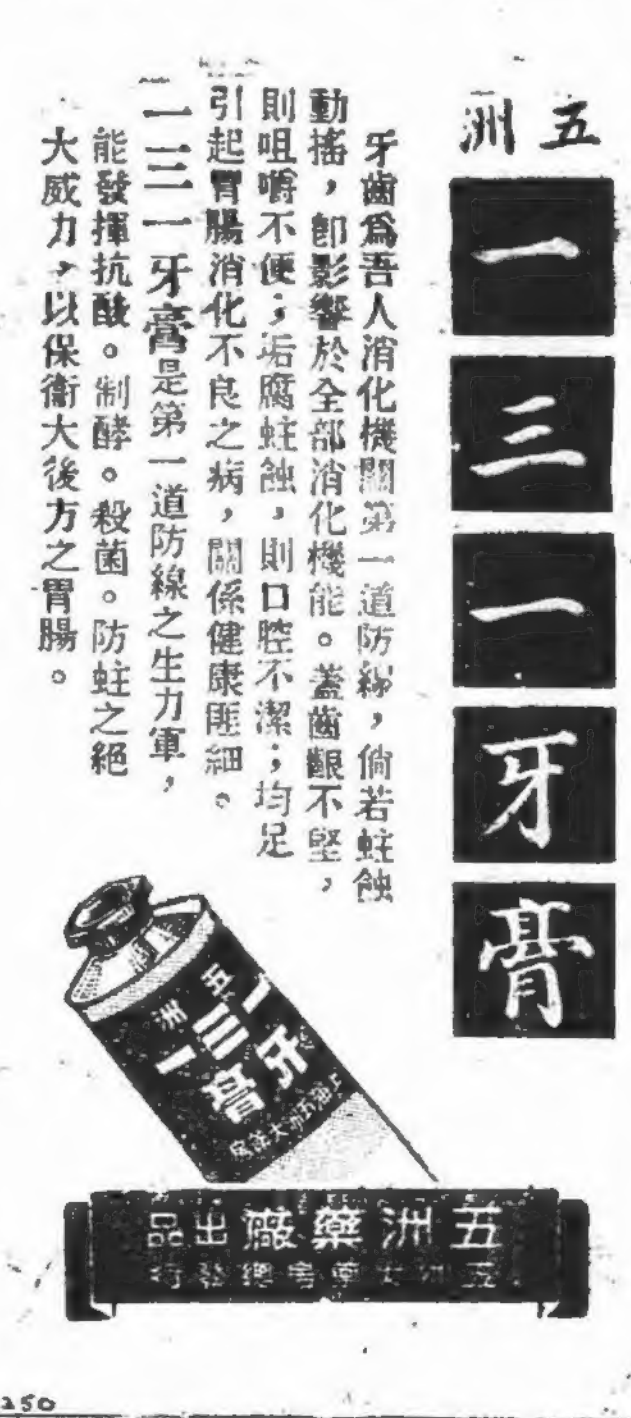 五洲
一三一牙膏
牙齒為吾人消化機關第一道防線，倘若蛀蝕
動搖，卽影響於全部消化機能。蓋齒齦不堅，
則咀嚼不便；垢腐蛀蝕，則口腔不潔；均足
引起胃腸消化不良之病，關係健康匪細。
一三一牙膏是第一道防線之生力軍，
能發揮抗酸。制酵。殺菌。防蛀之絕
大威力，以保衞大後方之胃腸。
五洲
一三一
牙膏
上海五洲大藥房
五洲藥廠出品
五洲大藥房總發行
250